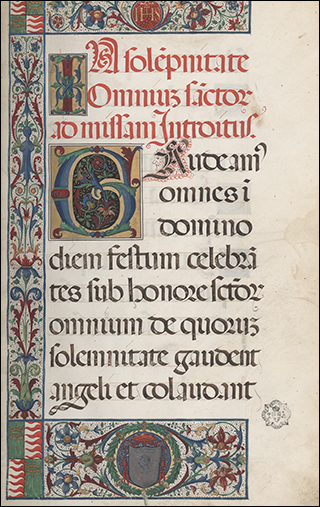 IHS
IN solēpnitate
Omniuʒ sāctor
ad missam Introitus.
GAudeam⁹
omnes ī
domino
diem festum celebrā
tes sub honore sctōr
omnium de quoruʒ
solemnitate gaudent
angeli et colaudant